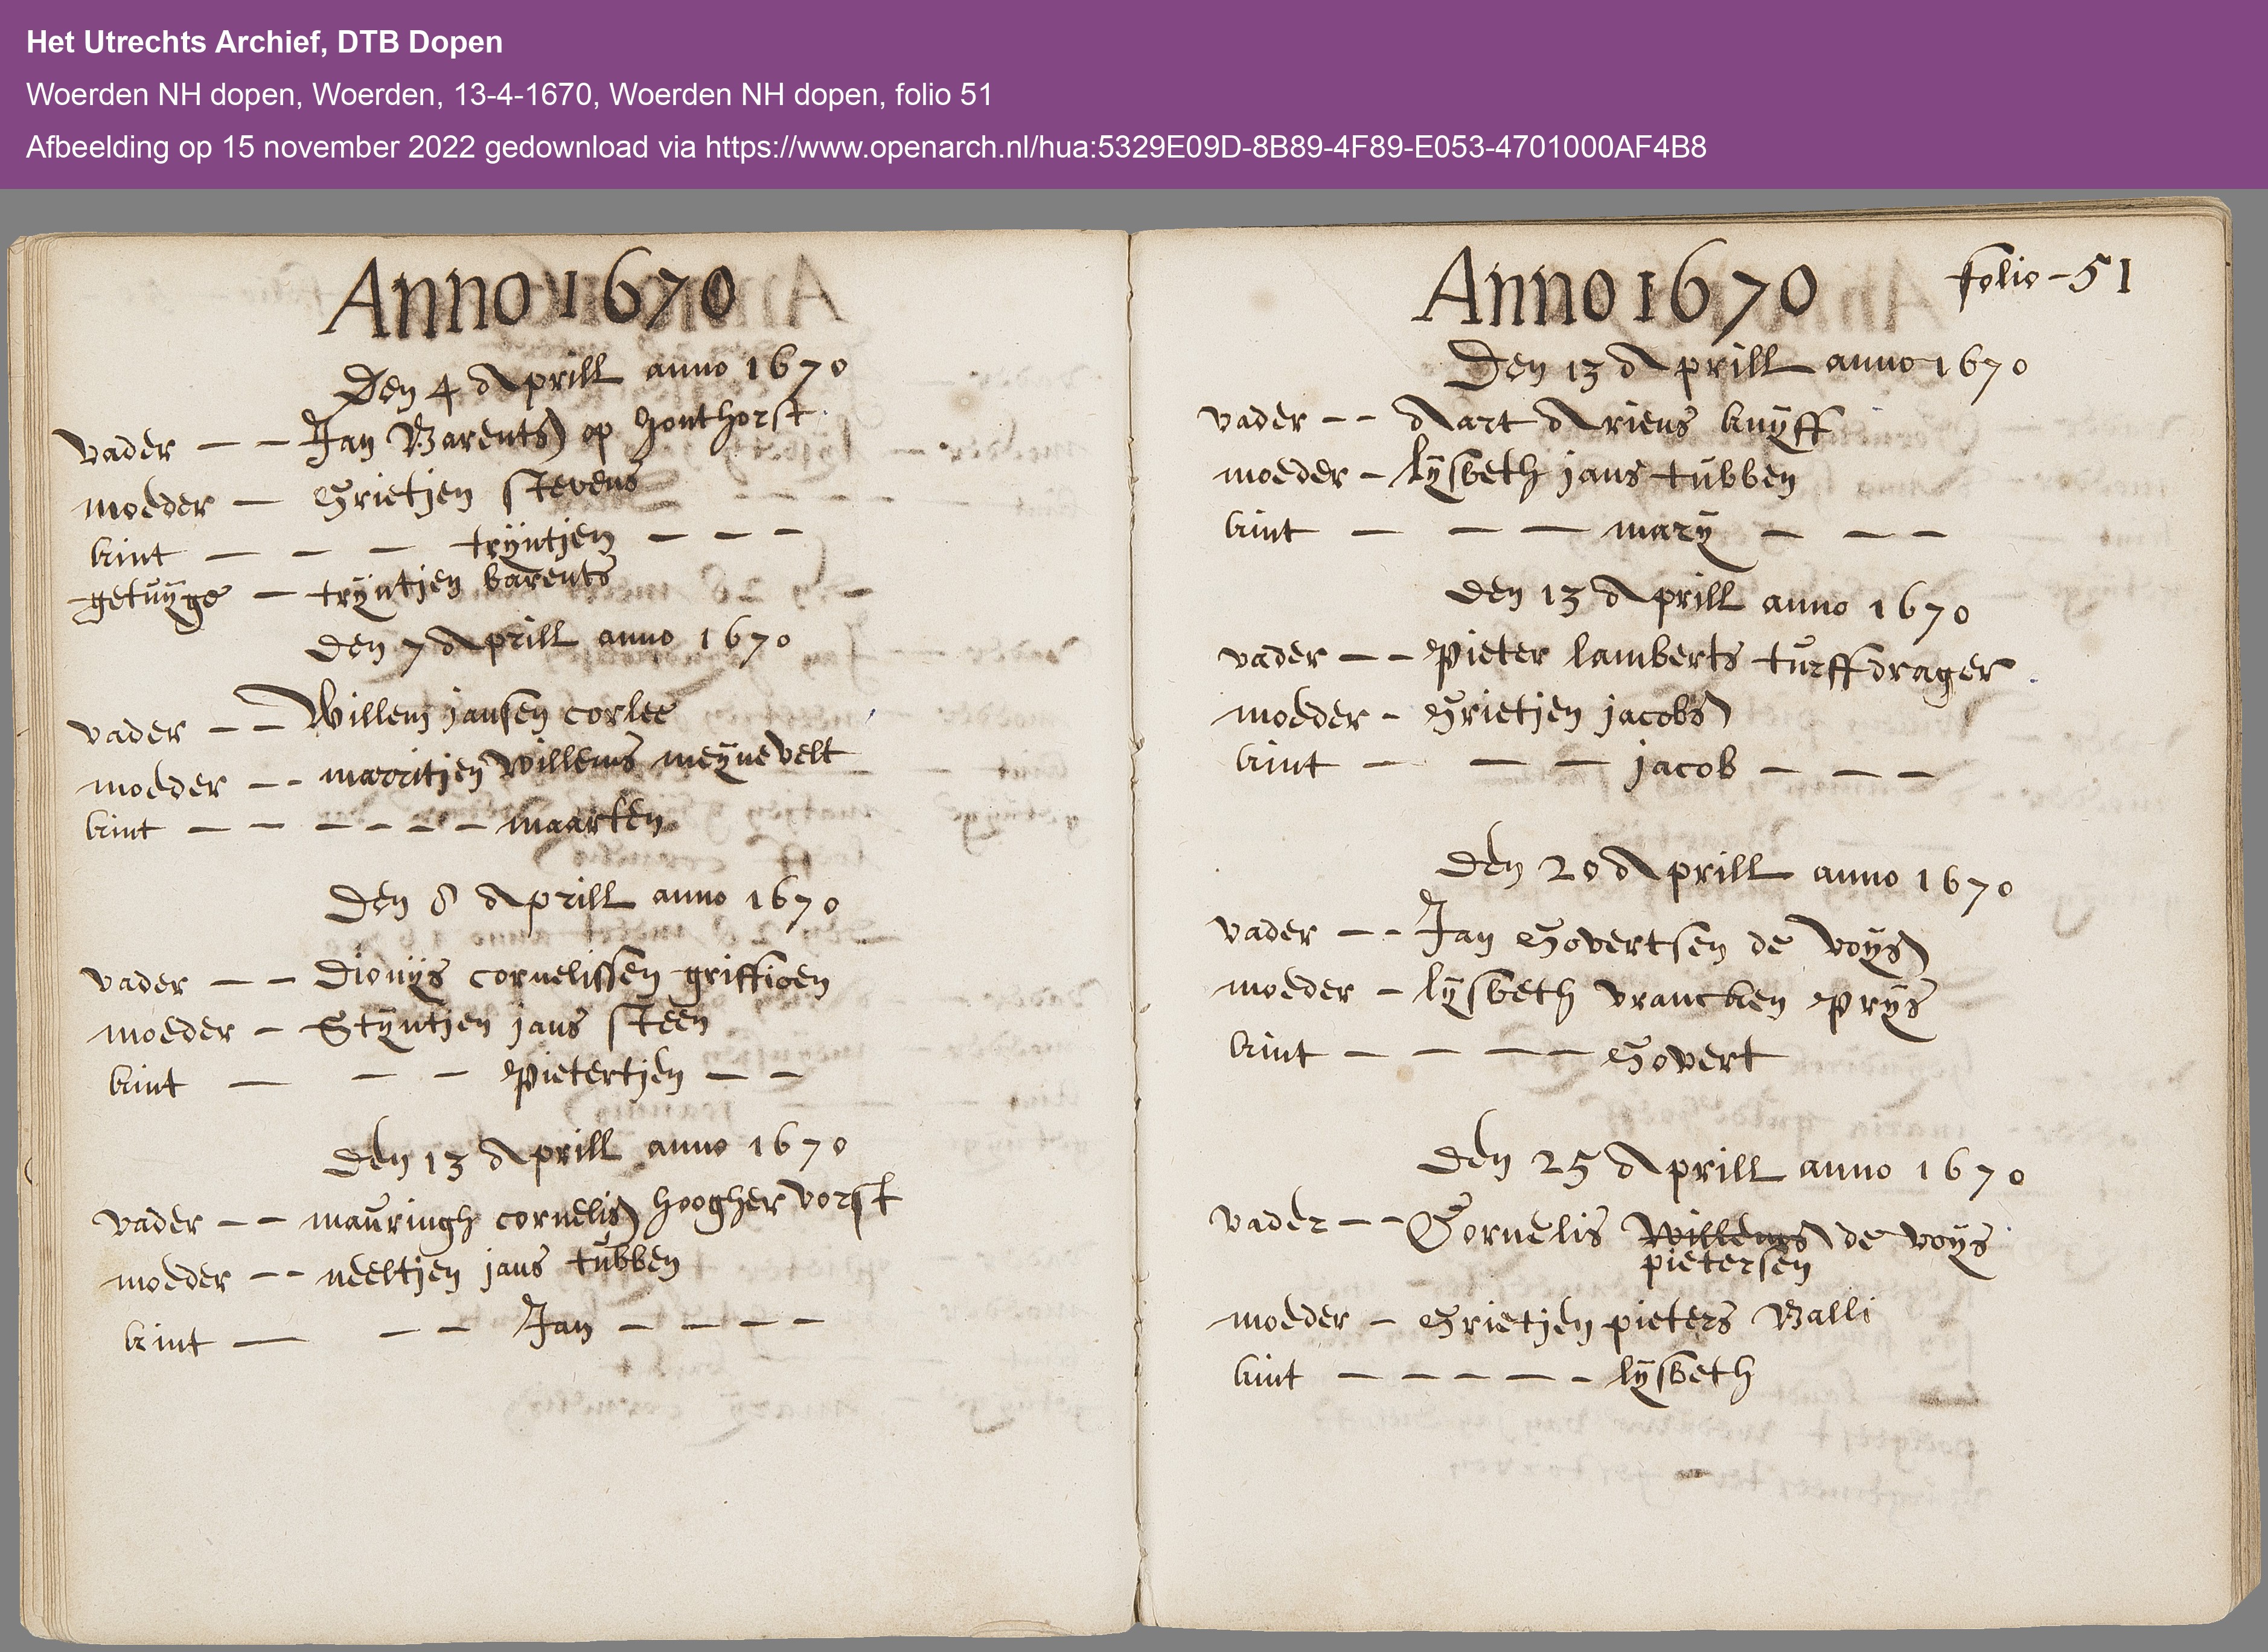 Het Utrechts Archief, DTB Dopen
Woerden NH dopen, Woerden, 13-4-1670, Woerden NH dopen, folio 51
Afbeelding op 15 november 2022 gedownload via https://www.openarch.nl/hua:5329E09D-8B89-4F89-E053-4701000AF4B8
Anno 1670
Den 4 Aprill anno 1670
vader -- Jan Barents op honthorst
moeder - Grietjen stevens
kint --- trÿntjen ---
getuÿge - trÿntjen barents
Den 7 Aprill anno 1670
vader -- Willem jansen corlee
moeder -- marritjen Willems meÿnevelt
kint ------ maarten
Den 8 Aprill anno 1670
vader -- Dionÿs cornelissen griffioen
moeder - Stÿntjen jans steen
kint --- Pietertjen --
Den 13 Aprill anno 1670
vader -- mauringh cornelis hooghervorst
moeder -- neeltjen jans tubben
kint --- Jan ----
Anno 1670
folio - 51
Den 13 Aprill anno 1670
vader -- Aart Ariens kuÿff
moeder - lÿsbeth jans tubben
kint --- marÿ ---
Den 13 Aprill anno 1670
vader -- Pieter lamberts turffdrager
moeder - Grietjen jacobs
kint --- jacob ---
Den 20 Aprill anno 1670
vader -- Jan Govertsen de voÿs
moeder - lÿsbeth vrancken Prÿs
kint ---- Govert
Den 25 Aprill anno 1670
vader -- Cornelis Willems de voÿs
pietersen
moeder - Grietjen pieters Balli
kint ----- lÿsbeth